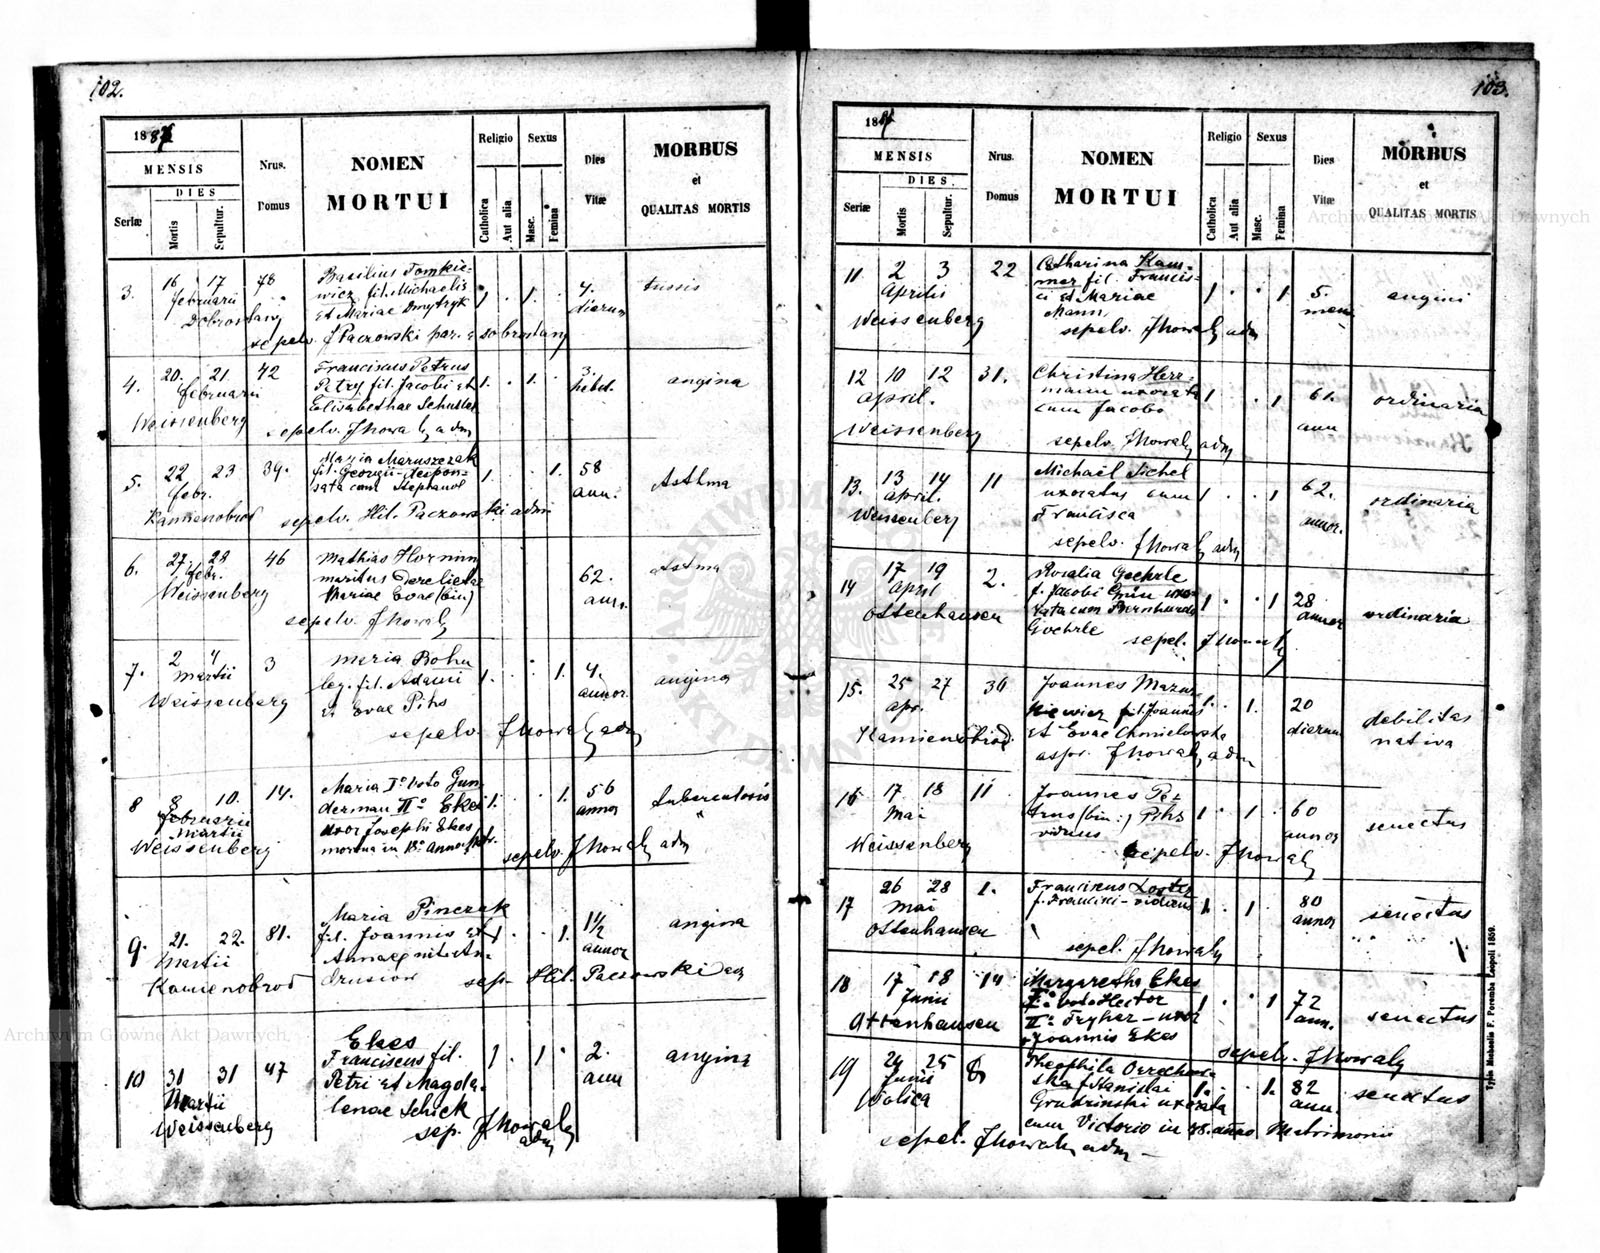 102.
1887
MENSIS
DIES
Seriæ
Mortis
Sepultur.
Nrus.
Domus
NOMEN
MORTUI
Religio
Catholica
Aut alia
Sexus
Masc.
Femina
Dies
Vitæ
MORBUS
et
QUALITAS MORTIS
3. 16 17 78
februarii
Dobrostany
Basilius Tomkie-
wicz fil. Michaelis
et Mariae Dmytryk
1 . 1.
4.
dierum
tussis
sepelv. J Paczowski par. Dobrostany
4. 20. 21 42
februarii
Weissenberg
Franciscus Petrus
Petry fil. Jacobi et
Elisabethae Schuster
1. . 1.
3.
hebd.
angina
sepelv. J Kowal adm
5. 22 23 39.
febr.
Kamienobrod
Maria Maruszczak
fil. Georgii
sata cum Stephano
1. . 1.
58
ann.
Asthma
sepelv. Hil. Paczowski adm
6. 27. 28 46
febr.
Weissenberg
Mathias Hornung
maritus derelictae
Mariae Evae (bin)
62.
ann.
astma
sepelv. J Kowal
7. 2 4 3
martii
Weissenberg
Maria Bohn
leg. fil. Adami
et Evae Pihs
1. . 1.
4.
annor.
angina
sepelv. J Kowal adm
8 8 10. 14.
februarii
martii
Weissenberg
Maria I° voto Gun-
derman II° Ekes
uxor Josephi Ekes
1. . 1.
56
annor
tuberculosis
sepelv. J Kowal adm
9. 21. 22. 81.
martii
Kamienobrod
Maria Pinczak
fil. Joannis et
Annae
1 . 1.
1½
annor
angina
sep. Hil. Paczowski adm
10 31 31 47
Martii
Weissenberg
Ekes
Franciscus fil.
Petri et Magda-
lenae Schick
1 . 1 .
2.
ann
angina
sep. J Kowal
adm
103.
1887
MENSIS
DIES.
Seriæ
Mortis
Sepultur.
Nrus.
Domus
NOMEN
MORTUI
Religio
Catholica
Aut alia
Sexus
Masc.
Femina
Dies
Vitæ
MORBUS
et
QUALITAS MORTIS
11 2 3 22
Aprilis
Weissenberg
Catharina Kam-
mer fil. Francis-
ci et Mariae
Mann
1 . . 1.
5.
mens
angini
sepelv. J Kowal adm
12 10 12 31.
april.
Weissenberg
Christina Herr-
mann uxorata
cum Jacobo
1 . 1
61.
ann
ordinaria
sepelv. J Kowal adm
13. 13 14 11
april.
Weissenberg
Michael Sichel
uxoratus cum
Francisca
1 . . 1
62.
annor.
ordinaria
sepelv. J Kowal adm
14 17 19 2.
April
Ottenhausen
Rosalia Goehrle
f. Jacobi Grün uxo-
rata cum Bernhardo
Goehrle
1 . . 1
28
annor
ordinaria
sepel. J Kowal
15. 25 27 36
apr.
Kamienobrod.
Joannes Mazur-
kiewicz fil. Joannis
et Evae Chmielowska
1. . 1.
20
dierum
debilitas
nativa
J Kowal adm
16 17 18 11
Mai
Weissenberg
Joannes Pe-
trus (bin:) Pihs
viduus
1 . 1 .
60
annor
senectus
sepelv. J Kowal
17 26 28 1.
Mai
Ottenhausen
Franciscus
f. Francisci - viduus
1. . 1
80
annor
senectus
sepel. J Kowal
18 17 18 14
Junii
Ottenhausen
Margaretha Ekes
I° voto Hector
II° Tryher - uxor
Joannis Ekes
1 . . 1
72
ann.
senectus
sepelv. J Kowal
19 24 25 8
Junii
Wolica
Theophila Orzechow-
ska f. Stanislai
Grudzinski uxorata
cum Victorio in 48. anno Matrimonii
1. . 1.
82
ann.
senectus
sepel. J Kowal adm
Typis Michaelis F. Poremba Leopoli 1859.
Archiwum Główne Akt Dawnych
Archiwum Główne Akt Dawnych
ARCHIWUM GŁÓWNE AKT DAWNYCH